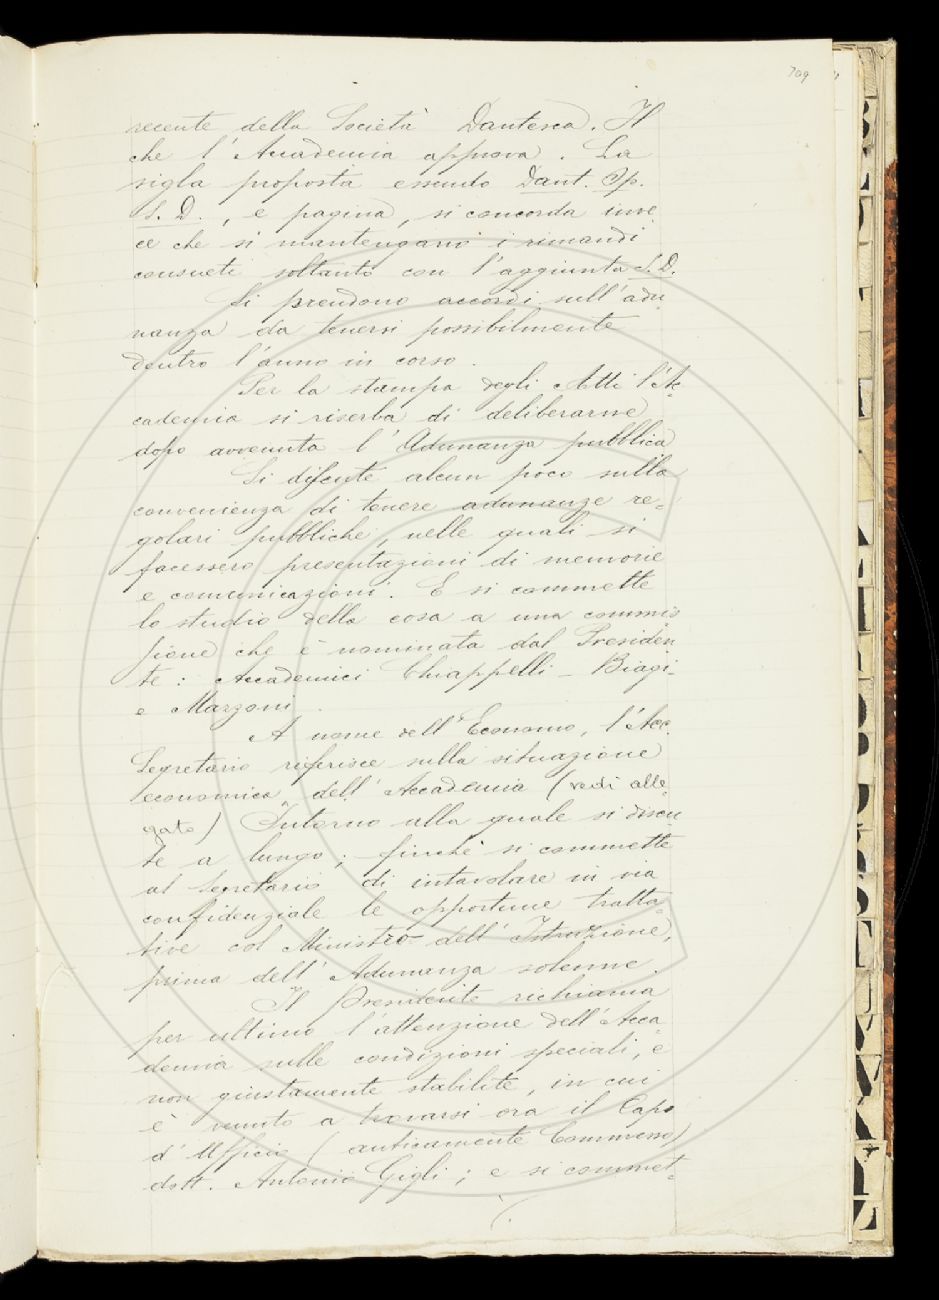 709
recente della Società Dantesca. Il
che l'Accademia approva. La
sigla proposta essendo Dant. Op.
S. D., e pagina, si concorda inve
ce che si mantengano i rimandi
consueti soltanto con l'aggiunta S. D.
Si prendono accordi sull'adu
nanza da tenersi possibilmente
dentro l'anno in corso.
Per la stampa degli Atti l'Ac
cademia si riserba di deliberarne
dopo avvenuta l'Adunanza pubblica
Si discute alcun poco sulla
convenienza di tenere adunanze re=
golari pubbliche, nelle quali si
facessero presentazioni di memorie
e comunicazioni. E si commette
lo studio della cosa a una commis
sione che è nominata dal Presiden
te: Accademici Chiappelli - Biagi-
e Marzoni.
A nome dell'Economo, l'Acc.
Segretario riferisce sulla situazione
economica dell'Accademia (vedi alle=
gato) Intorno alla quale si discu
te a lungo; finché si commette
al Segretario di intavolare in via
confidenziale le opportune tratta=
tive col Ministro dell'Istruzione,
prima dell'Adunanza solenne.
Il Presidente richiama
per ultimo l'attenzione dell'Acca=
demia sulle condizioni speciali, e
non giustamente stabilite, in cui
è venuto a trovarsi ora il Capo
d'Ufficio (anticamente Commesso)
dott. Antonio Gigli; e si commet=